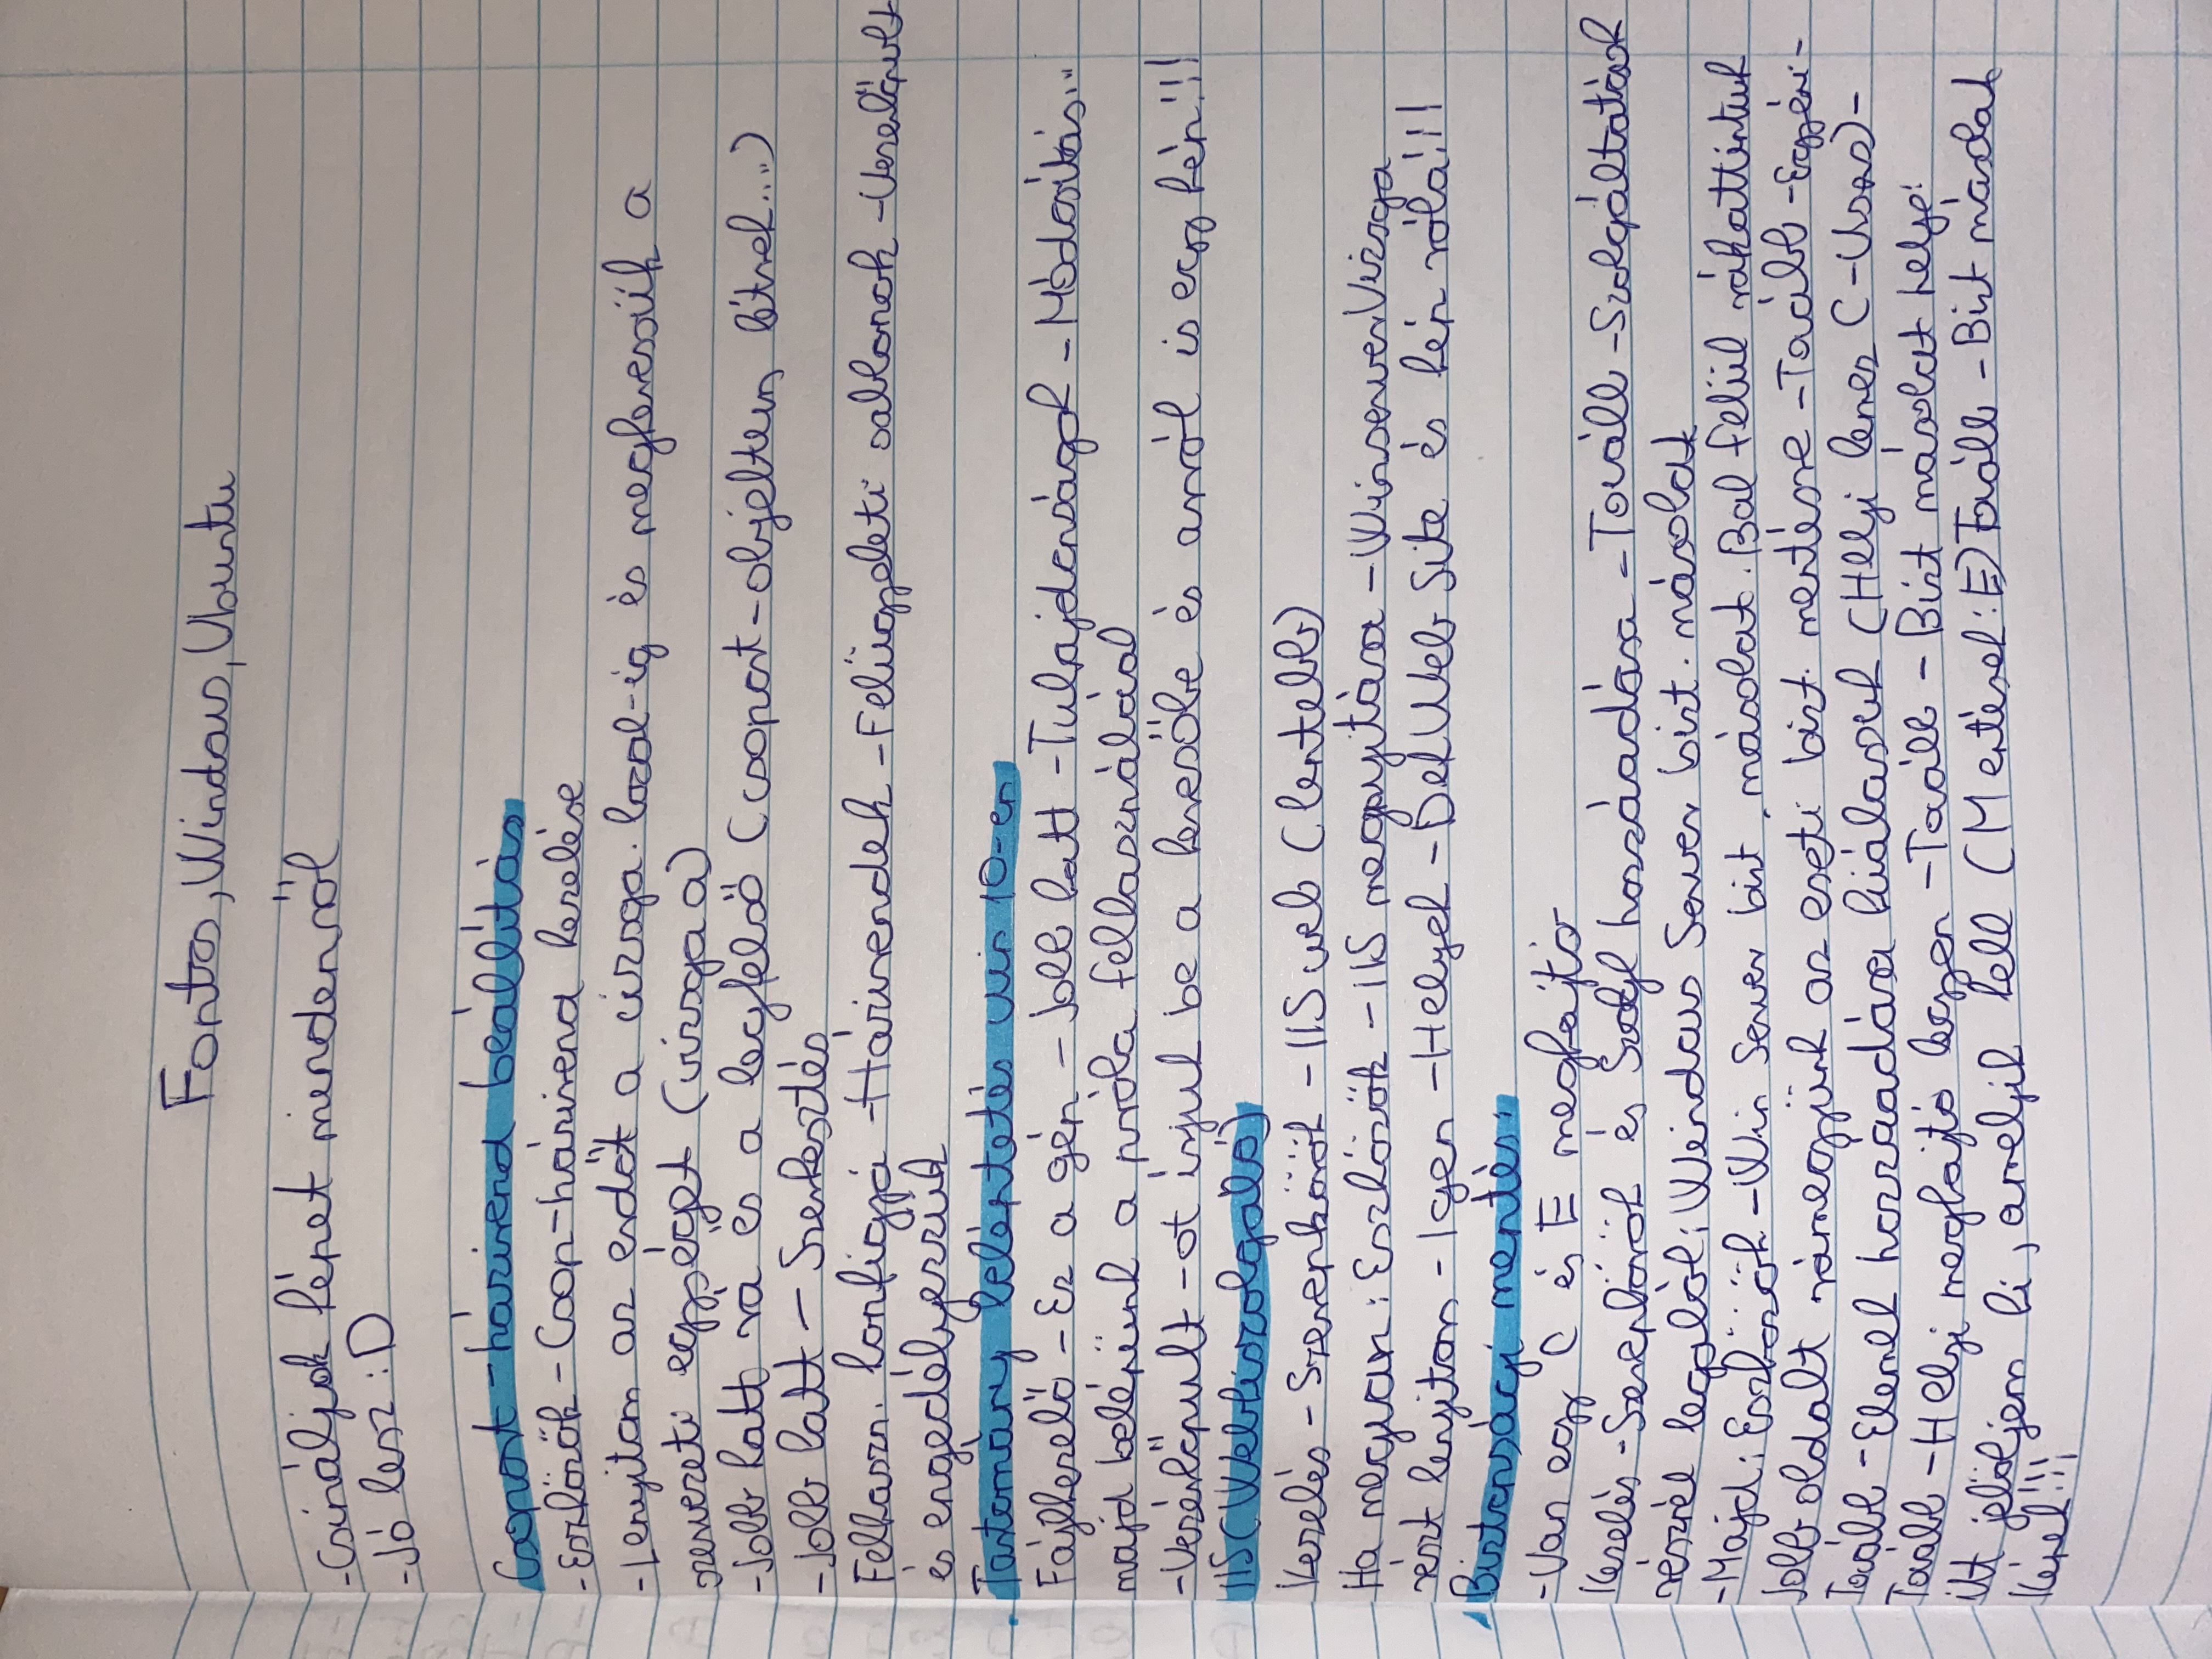 Fontos, Windows, Ubuntu
-Csináljak képet mindenről
-Jó lesz :D
Csoport-házirend beállítás
-Eszközök - Csop-házirend kezelése
-Lenyitom az erdőt a vizsga.local-ig és megkeressük a
szervezeti egységet (vizsga a)
-Jobb katt rá és a legfelső (csoport-objektum létreh....)
-Jobb katt - Szerkesztés
Felhaszn. konfigjá -Házirendek -Felügyeleti sablonok -Vezérlőpult
és engedélyezzük
Tartomány beléptetés win 10-en
Fájlkezelő - Ez a gép - Jobb katt -Tulajdonságok - Módosítás...
majd belépünk a próba felhasználóval
-Vezérlőpult -ot írjuk be a keresőbe és arról is egy kép!!!
IIS (Webkiszolgáló)
Kezelés - Szerepkörök - IIS web (lentebb)
Ha megvan: Eszközök - IIS megnyitása - WinserverVizsga
részt lenyitom - Igen - Helyek - Def Web Site és kép róla!!!
Biztonsági mentés:
-Van egy C és E meghajtó
Kezelés -Szerepkörök és Szolg hozzáadása - Tovább -Szolgáltatások
résznél legalól: Windows Server bizt. másolat
-Majd: Eszközök -Win Server bizt. másolat. Bal felül rákattintuk
Jobb oldalt rámegyünk az eseti bizt. mentésre -Tovább -Egyéni-
Tovább -Elemek hozzáadása kiválasszuk (Helyi lemez C-Users)-
Tovább -Helyi meghajtó legyen -Tovább - Bizt másolat helye:
itt jelöljem ki, amelyik kell (Mentések: E) Tovább - Bizt másolat
Képek!!!